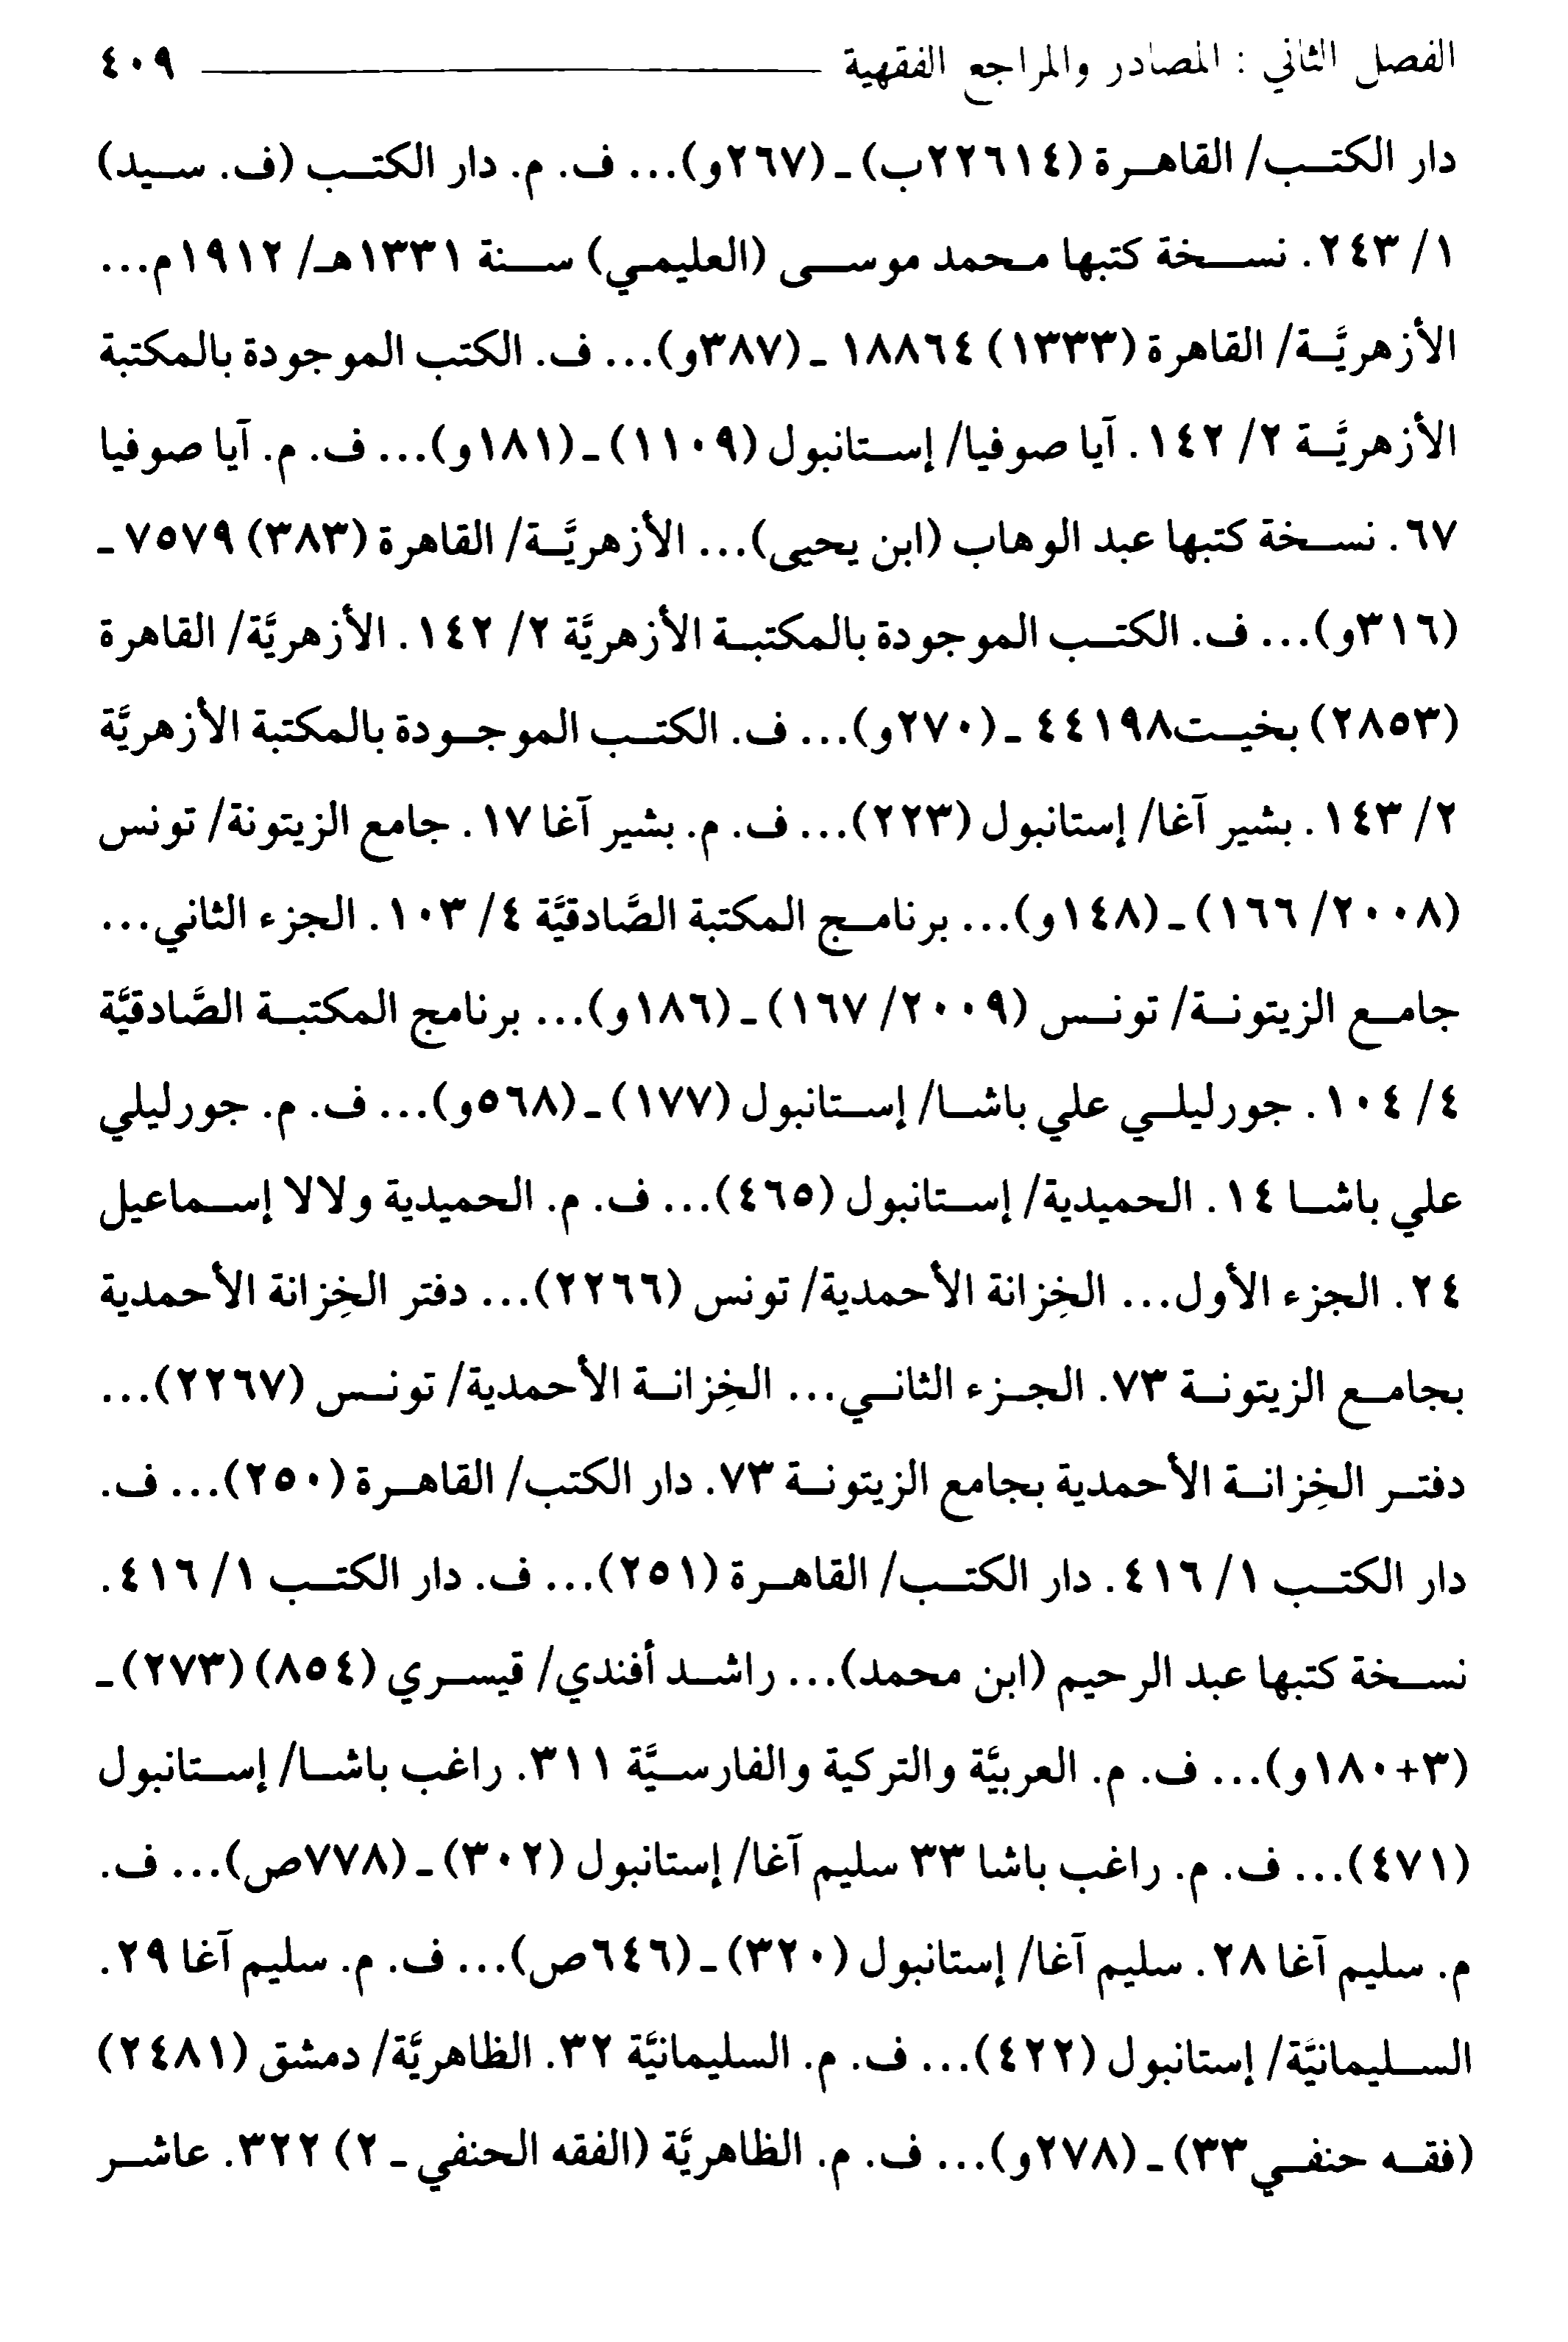 الفصل الثاني : المصادر والمراجع الفقهية ٤٠٩
دار الكتب/ القاهرة (٢٢٦١٤ب) ـ (٢٦٧و)... ف. م. دار الكتب (ف. سيد)
١/ ٢٤٣. نسخة كتبها محمد موسى (العليمي) سنة ١٣٣١هـ/ ١٩١٢م...
الأزهريَّة/ القاهرة (١٣٣٣) ١٨٨٦٤ ـ (٣٨٧و)... ف. الكتب الموجودة بالمكتبة
الأزهريَّة ٢/ ١٤٢. آيا صوفيا/ إستانبول (١١٠٩) ـ (١٨١و)... ف. م. آيا صوفيا
٦٧. نسخة كتبها عبد الوهاب (ابن يحيى)... الأزهريَّة/ القاهرة (٣٨٣) ٧٥٧٩ ـ
(٣١٦و)... ف. الكتب الموجودة بالمكتبة الأزهريَّة ٢/ ١٤٢. الأزهريَّة/ القاهرة
(٢٨٥٣) بخيت٤٤١٩٨ ـ (٢٧٠و)... ف. الكتب الموجودة بالمكتبة الأزهريَّة
٢/ ١٤٣. بشير آغا/ إستانبول (٢٢٣)... ف. م. بشير آغا ١٧. جامع الزيتونة/ تونس
(٢٠٠٨/ ١٦٦) ـ (١٤٨و)... برنامج المكتبة الصَّادقيَّة ٤/ ١٠٣. الجزء الثاني...
جامع الزيتونة/ تونس (٢٠٠٩/ ١٦٧) ـ (١٨٦و)... برنامج المكتبة الصَّادقيَّة
٤/ ١٠٤. جورليلي علي باشا/ إستانبول (١٧٧) ـ (٥٦٨و)... ف. م. جورليلي
علي باشا ١٤. الحميدية/ إستانبول (٤٦٥)... ف. م. الحميدية ولالا إسماعيل
٢٤. الجزء الأول... الخِزانة الأحمدية/ تونس (٢٢٦٦)... دفتر الخِزانة الأحمدية
بجامع الزيتونة ٧٣. الجزء الثاني... الخِزانة الأحمدية/ تونس (٢٢٦٧)...
دفتر الخِزانة الأحمدية بجامع الزيتونة ٧٣. دار الكتب/ القاهرة (٢٥٠)... ف.
دار الكتب ١/ ٤١٦. دار الكتب/ القاهرة (٢٥١)... ف. دار الكتب ١/ ٤١٦.
نسخة كتبها عبد الرحيم (ابن محمد)... راشد أفندي/ قيسري (٨٥٤) (٢٧٣) ـ
(٣+١٨٠و)... ف. م. العربيَّة والتركية والفارسيَّة ٣١١. راغب باشا/ إستانبول
(٤٧١)... ف. م. راغب باشا ٣٣ سليم آغا/ إستانبول (٣٠٢) ـ (٧٧٨ص)... ف.
م. سليم آغا ٢٨. سليم آغا/ إستانبول (٣٢٠) ـ (٦٤٦ص)... ف. م. سليم آغا ٢٩.
السليمانيَّة/ إستانبول (٤٢٢)... ف. م. السليمانيَّة ٣٢. الظاهريَّة/ دمشق (٢٤٨١)
(فقه حنفي٣٣) ـ (٢٧٨و)... ف. م. الظاهريَّة (الفقه الحنفي ـ ٢) ٣٢٢. عاشر